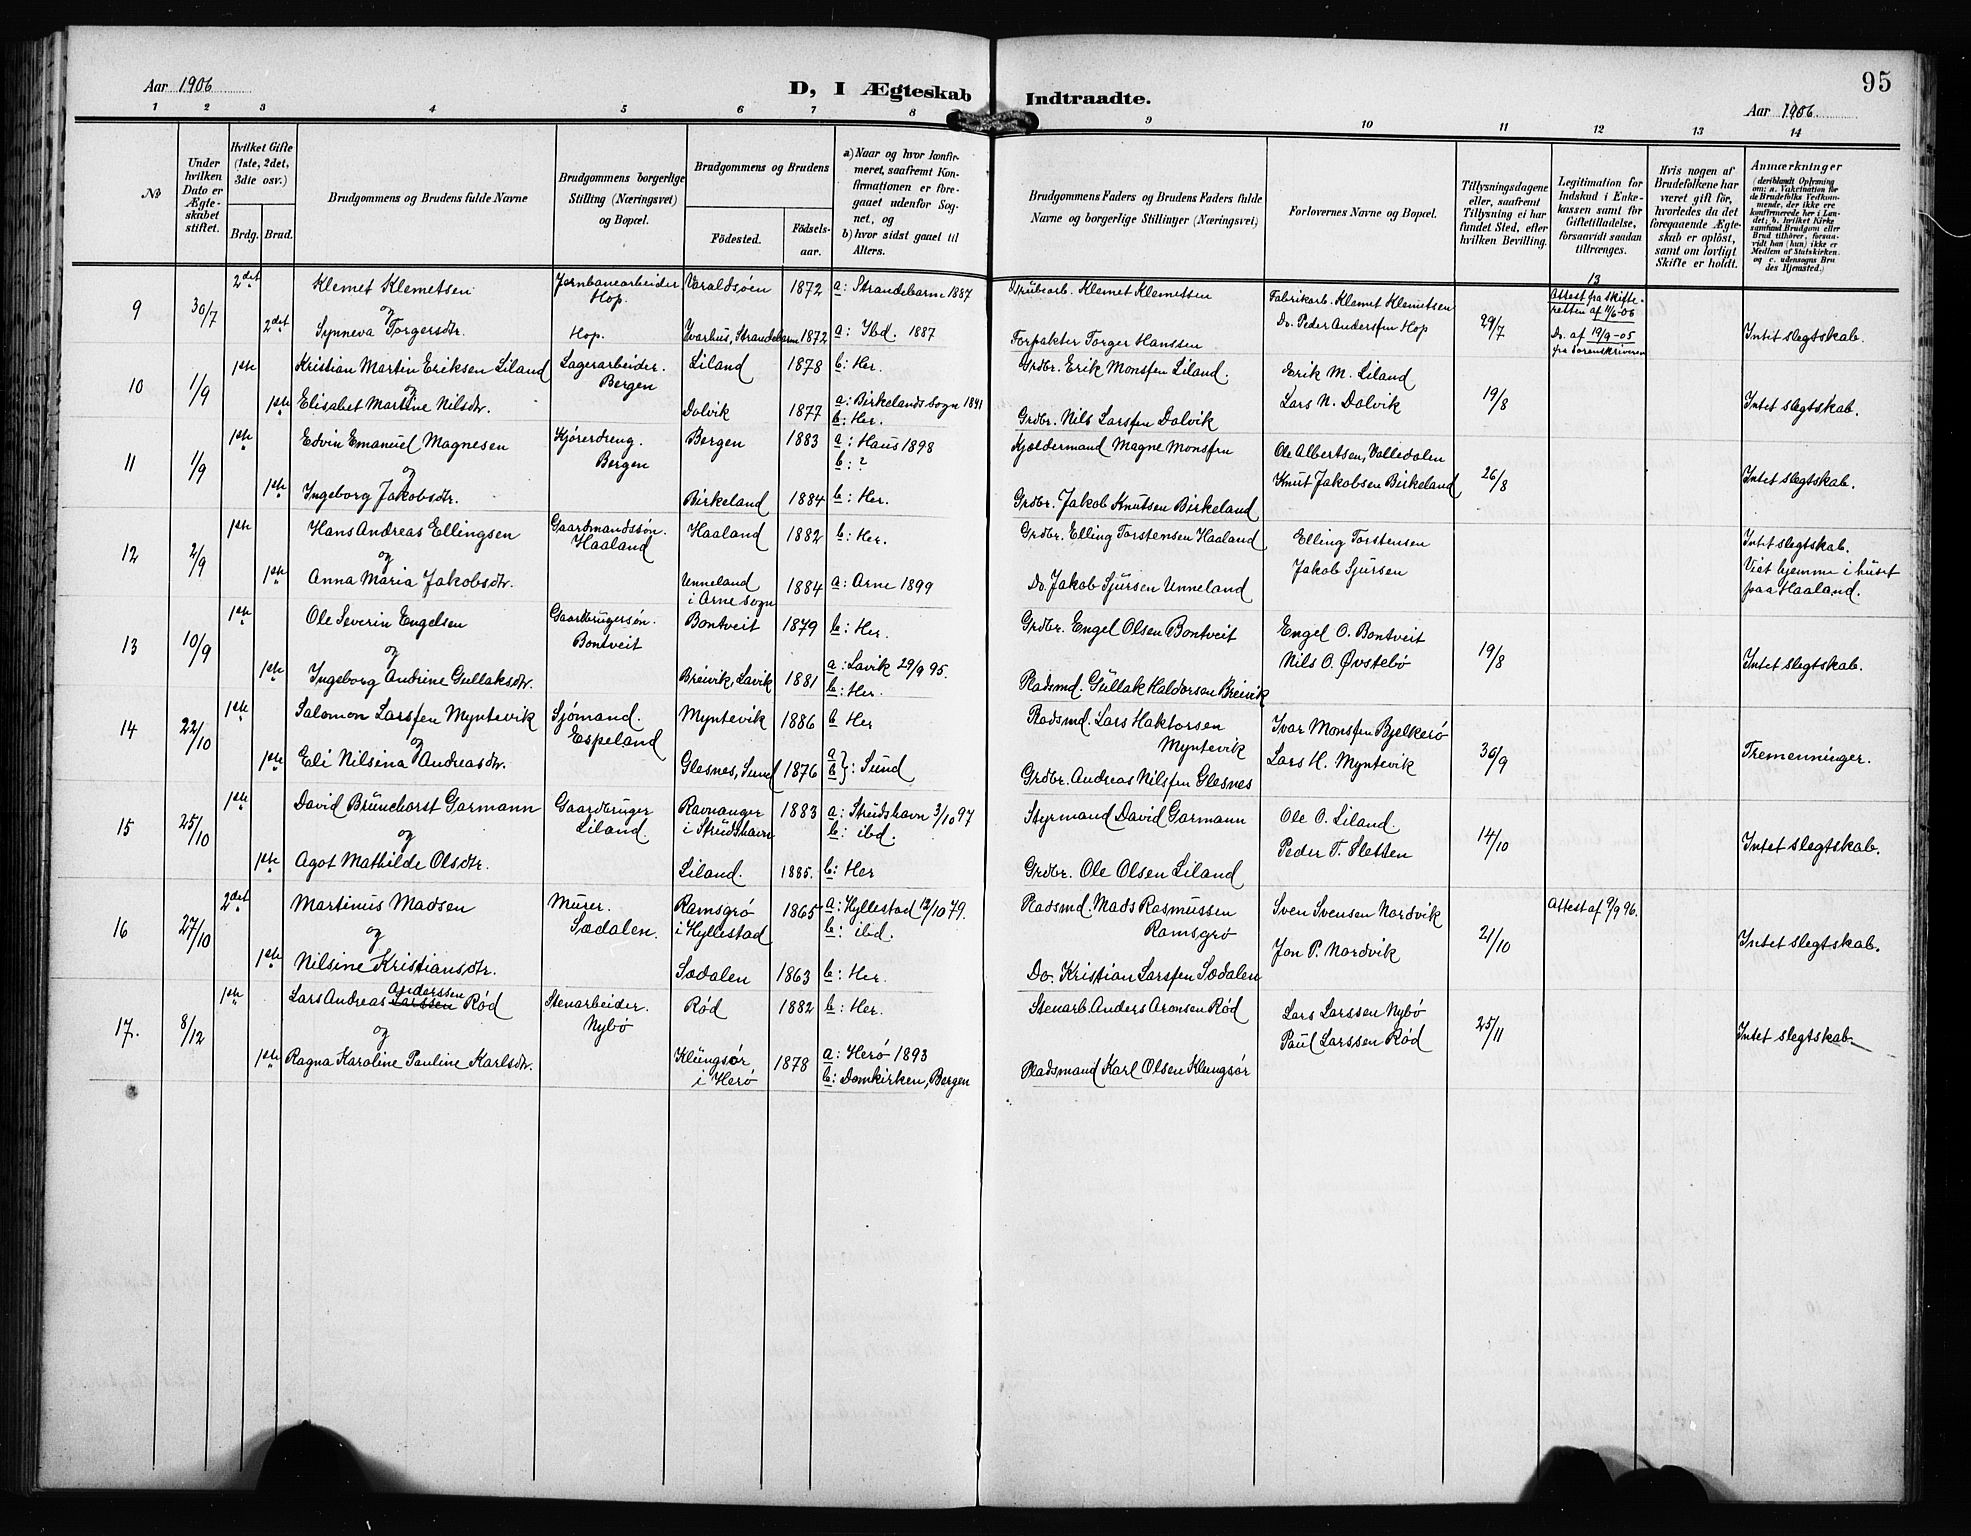 95
Aar 1906
D, I Ægteskab Indtraadte.
Aar 1906
1 2 3 4 5 6 7 8 9 10 11 12 13 14
No
Under hvilken Dato er Ægteskabet stiftet.
Hvilket Gifte (1ste, 2det, 3die osv.)
Brdg. Brud.
Brudgommens og Brudens fulde Navne
Brudgommens borgerlige Stilling (Næringsvei) og Bopæl.
Brudgommens og Brudens
Födested. Födsels-aar.
a) Naar og hvor konfirmeret, saafremt Konfirmationen er foregaaet udenfor Sognet, og
b) hvor sidst gaaet til Alters.
Brudgommens Faders og Brudens Faders fulde Navne og borgerlige Stillinger (Næringsvei)
Forlovernes Navne og Bopæl.
Tillysningsdagene eller, saafremt Tillysning ei har fundet Sted, efter hvilken Bevilling.
Legitimation for Indskud i Enkekassen samt for Giftetilladelse, forsaavidt saadan tiltrænges.
Hvis nogen af Brudefolkene har været gift för, hvorledes da det foregaaende Ægteskab er oplöst, samt om lovligt Skifte er holdt.
Anmærkninger
(deriblandt Oplysning om: a. Vakcination for de Brudefolks Vedkommende, der ikke ere konfirmerede her i Landet; b. hvilket Kirkesamfund Brudgom eller Brud tilhörer, forsaavidt han (hun) ikke er Medlem af Statskirken, og c. udensogns Brudes Hjemsted.)
9 30/7 2det Klemet Klemetsen Jernbanearbeider Hop. Varaldsöen 1872 a: Strandebarm 1887 Grubearb. Klemet Klemetsen Fabrikarb. Klemet Klemetsen 29/7 13 Attest fra skifteretten af 11/6-06
og
2det Synneva Torgersdtr. Hop. Ivarhus, Strandebarm 1872 a: Ibd. 1887 Forpakter Torger Hanssen Do. Peder Andersen Hop Do. af 19/9-05 fra sorenskriveren Intet slegtskab.
10 1/9 1ste Kristian Martin Eriksen Liland Lagerarbeider. Bergen Liland 1878 b: Her. Grdbr. Erik Monsen Liland. Erik M. Liland 19/8
og
1ste Elisabet Martine Nilsdtr. Dolvik 1877 a: Birkelands sogn 1891 b: Her. Grdbr. Nils Larssen Dolvik Lars N. Dolvik Intet slegtskab.
11 1/9 1ste Edvin Emanuel Magnesen Kjörerdreng. Bergen Bergen 1883 a: Haus 1898 b: ? Kjældermand Magne Monsen Ole Albertsen, Valledalen 26/8
og
1ste Ingeborg Jakobsdtr. Birkeland 1884 b: Her. Grdbr. Jakob Knutsen Birkeland Knut Jakobsen Birkeland Intet slegtskab.
12 2/9 1ste Hans Andreas Ellingsen Gaardmandssön. Haaland Haaland 1882 b: Her. Grdbr. Elling Torstensen Haaland Elling Torstensen Intet slegtskab.
og
1ste Anna Maria Jakobsdtr. Unneland i Arne sogn 1884 a: Arne 1899 Do. Jakob Sjursen Unneland Jakob Sjursen Viet hjemme i huset paa Haaland.
13 10/9 1ste Ole Severin Engelsen Gaardbrugersön. Bontveit Bontveit 1879 b: Her. Grdbr. Engel Olsen Bontveit Engel O. Bontveit 19/8
og
1ste Ingeborg Andrine Gullaksdtr. Breivik, Lavik 1881 a: Lavik 29/9 95. b: Her. Pladsmd. Gullak Haldorsen Breivik Nils O. Øvstebö Intet slegtskab.
14 22/10 1ste Salomon Larssen Myntevik Sjömand. Espeland Myntevik 1886 b Her Pladsmd. Lars Haktorsen Myntevik Ivar Monsen Bjelkerö 30/9
og
1ste Eli Nilsina Andreasdtr. Glesnes, Sund 1876 a b}: Sund Grdbr. Andreas Nilssen Glesnes Lars H. Myntevik Tremenninger.
15 25/10 1ste David Brunchorst Garmann Gaardbruger Liland. Ravnanger i Strudshavn 1883 a: Strudshavn 3/10 97 b: ibd. Styrmand David Garmann Ole O. Liland. 14/10
og
1ste Agot Mathilde Olsdtr. Liland. 1885. b: Her Grdbr. Ole Olsen Liland Peder T. Sletten Intet slegtskab.
16 27/10 2det Martinus Madsen Murer. Sædalen. Ramsgrö i Hyllestad 1865 a: Hyllestad 12/10 79. b: ibd. Pladsmd. Mads Rasmussen Ramsgrö Sven Svensen Nordvik 21/10 Attest af 9/9 96.
og
1ste Nilsine Kristiansdtr. Sædalen 1863 b: Her. Do. Kristian Larssen Sædalen Jon P. Nordvik Intet slegtskab.
17. 8/12 1ste Lars Andreas Larssen Anderssen Röd Stenarbeider. Nybö Röd 1882 b: Her. Stenarb. Anders Aronsen Röd Lars Larssen Nybö 25/11
og
1ste Ragna Karoline Pauline Karlsdtr. Klungsör i Herö 1878 a: Herö 1893 b: Domkirken, Bergen Pladsmand Karl Olsen Klungsör Paul Larssen Röd Intet slegtskab.